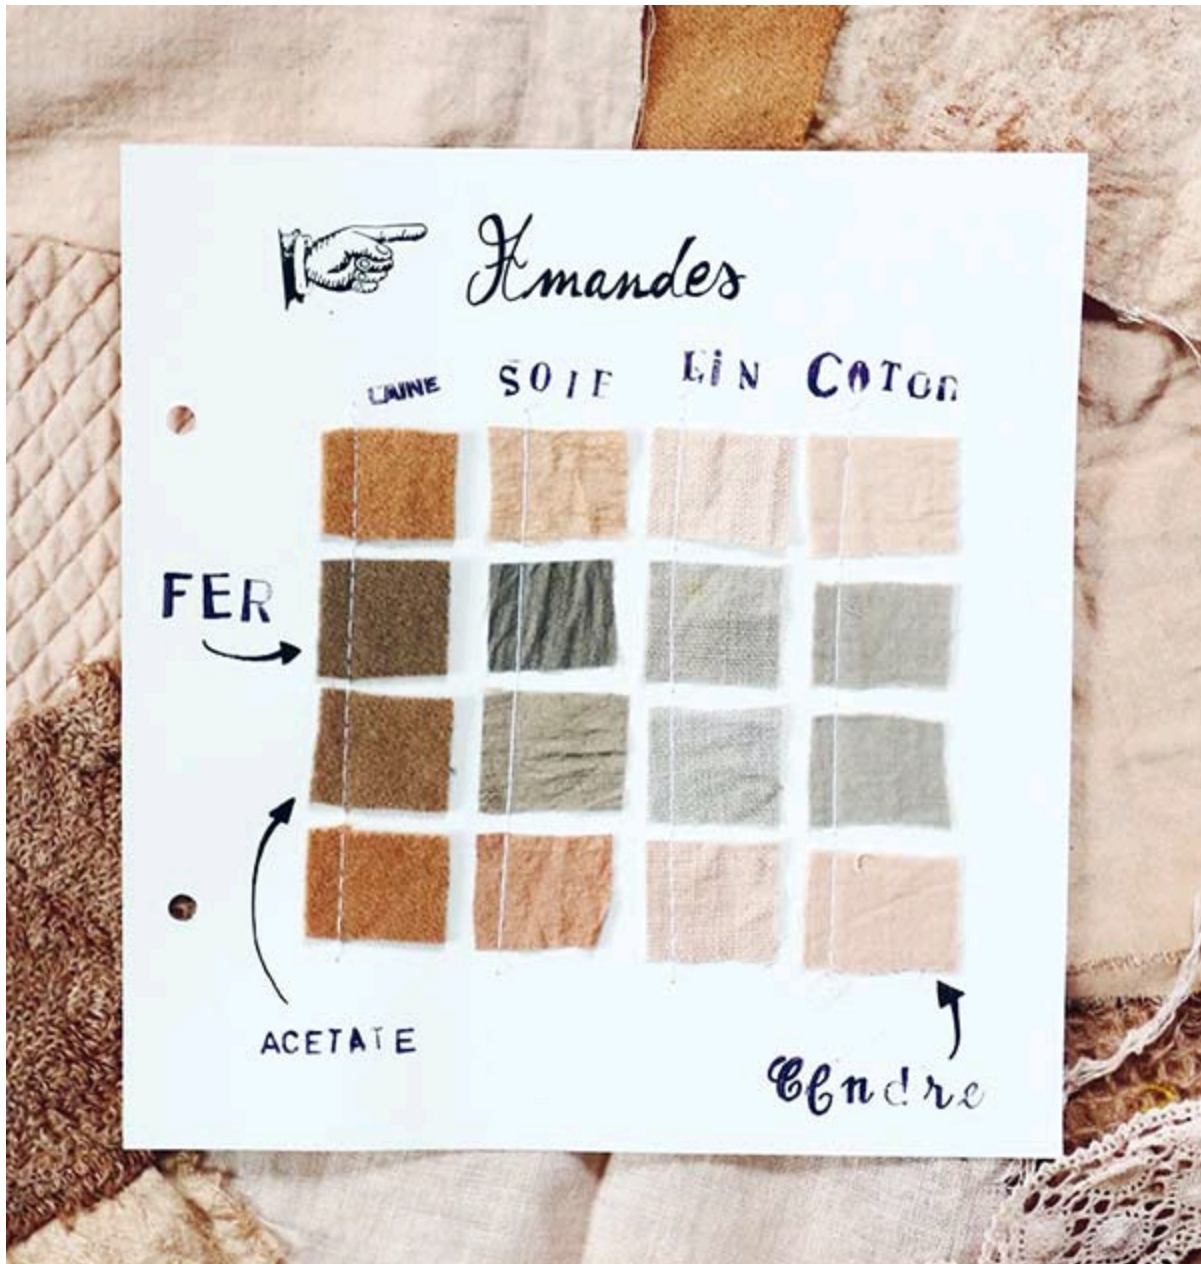 Amandes
LAINE SOIE LIN COTON
FER
ACETATE
Cendre